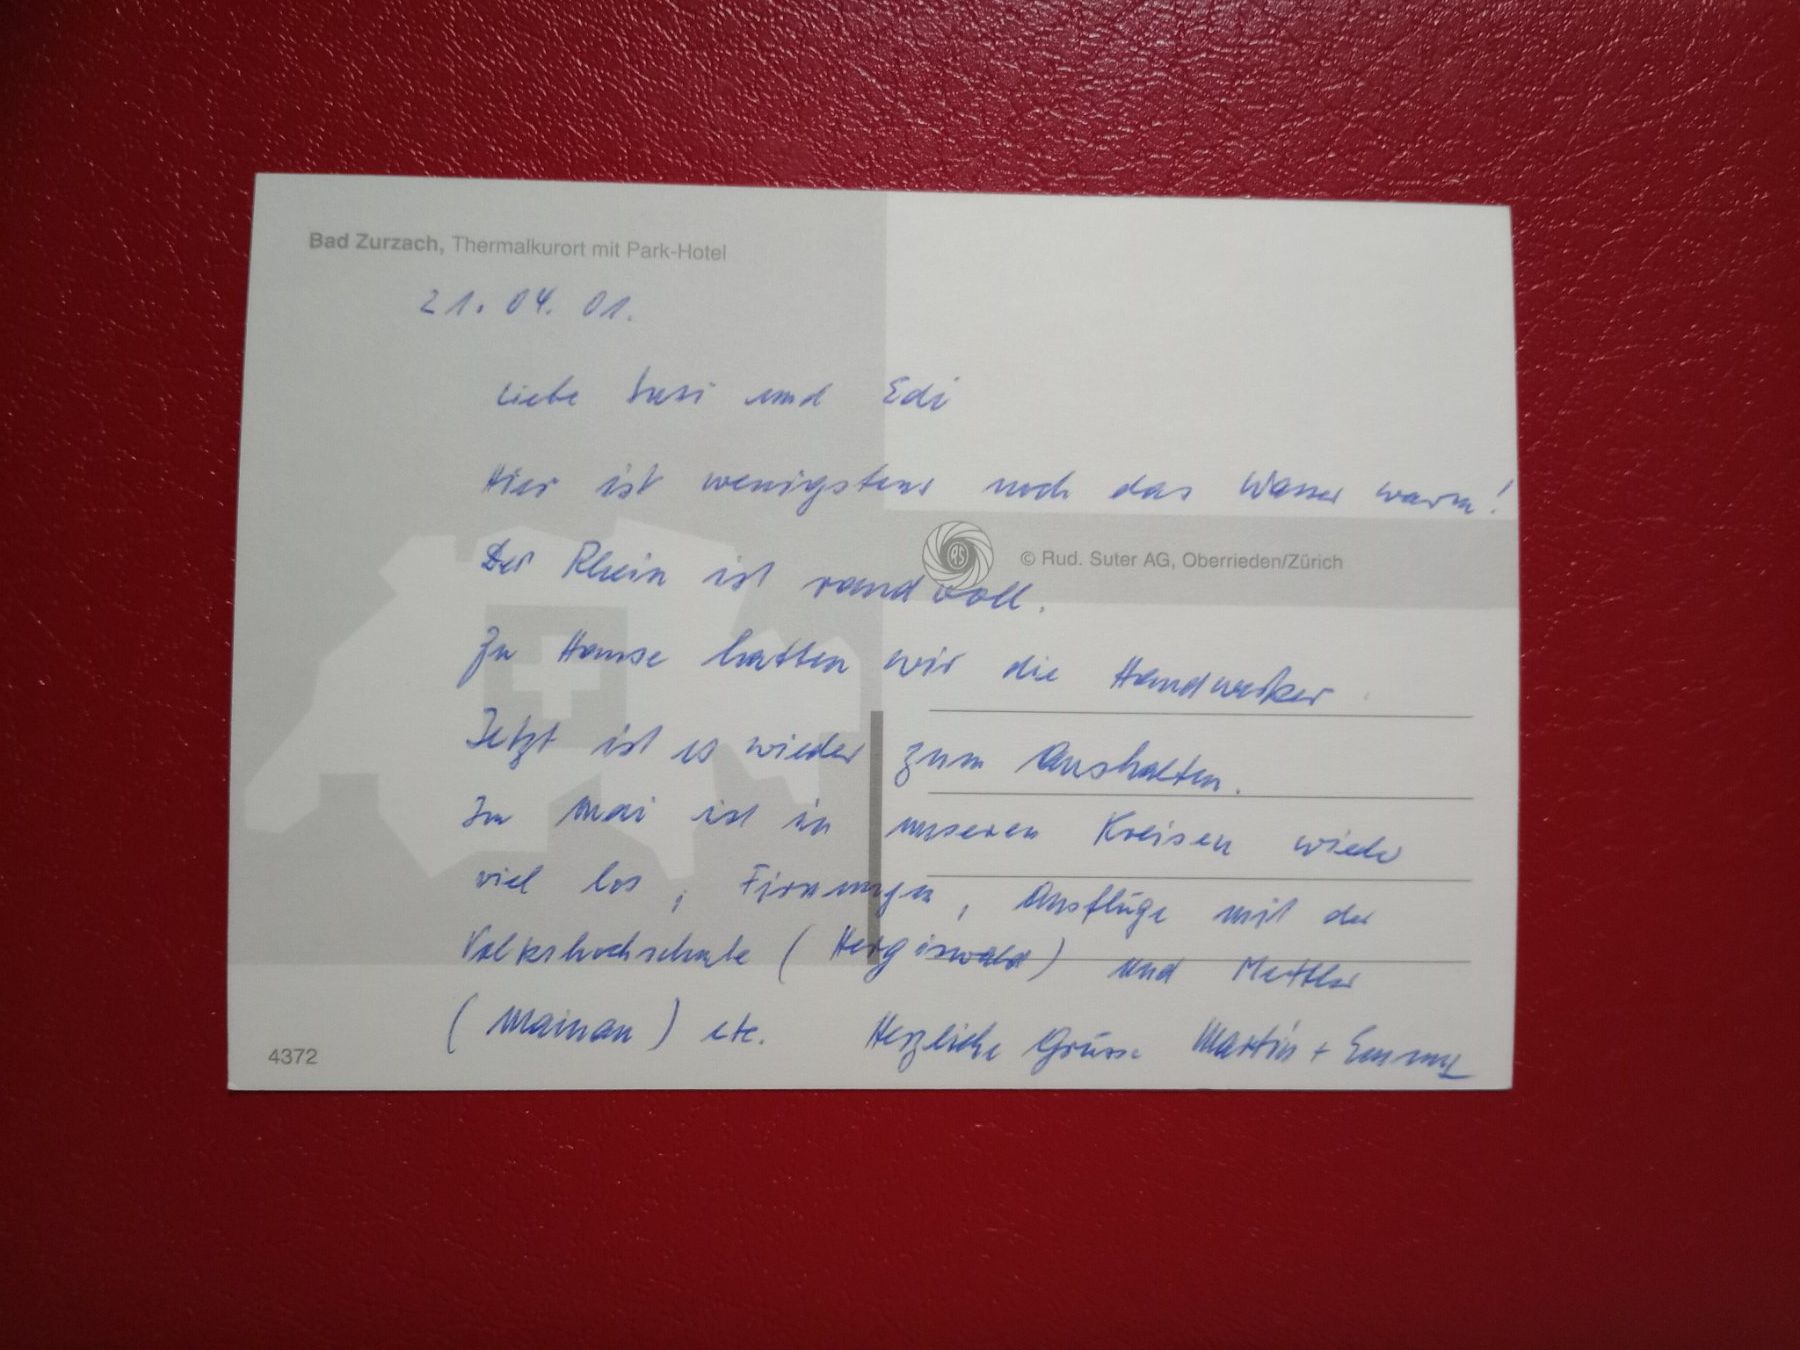 Bad Zurzach, Thermalkurort mit Park-Hotel
21. 04. 01.
Liebe Susi und Edi
Hier ist wenigstens noch das Wasser warm!
RS
© Rud. Suter AG, Oberrieden/Zürich
Der Rhein ist randvoll.
Zu Hause hatten wir die Handwerker.
Jetzt ist es wieder zum Aushalten.
Im Mai ist in unseren Kreisen wieder
viel los, Firmungen, Ausflüge mit der
Volkshochschule (Hergiswald) und Mettler
(Mainau) etc. Herzliche Grüsse Martin + Emmy
4372